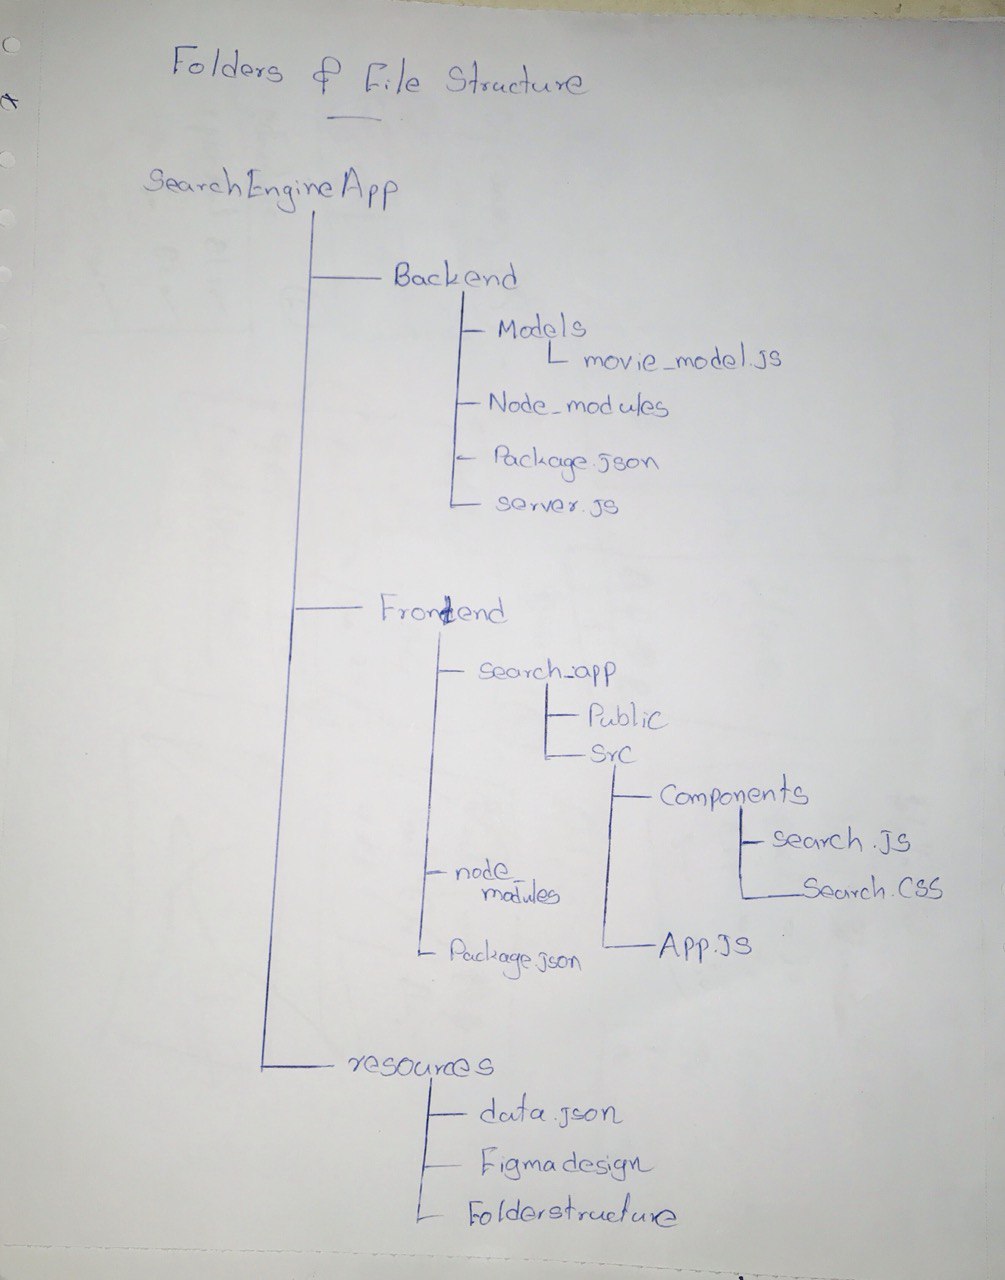 Folders & File Structure
SearchEngineApp
Backend
Models
movie_model.js
Node_modules
Package.json
server.js
Frontend
search_app
Public
Src
Components
search.JS
Search.CSS
node_
modules
App.JS
Package.json
resources
data.json
Figma design
Folderstructure